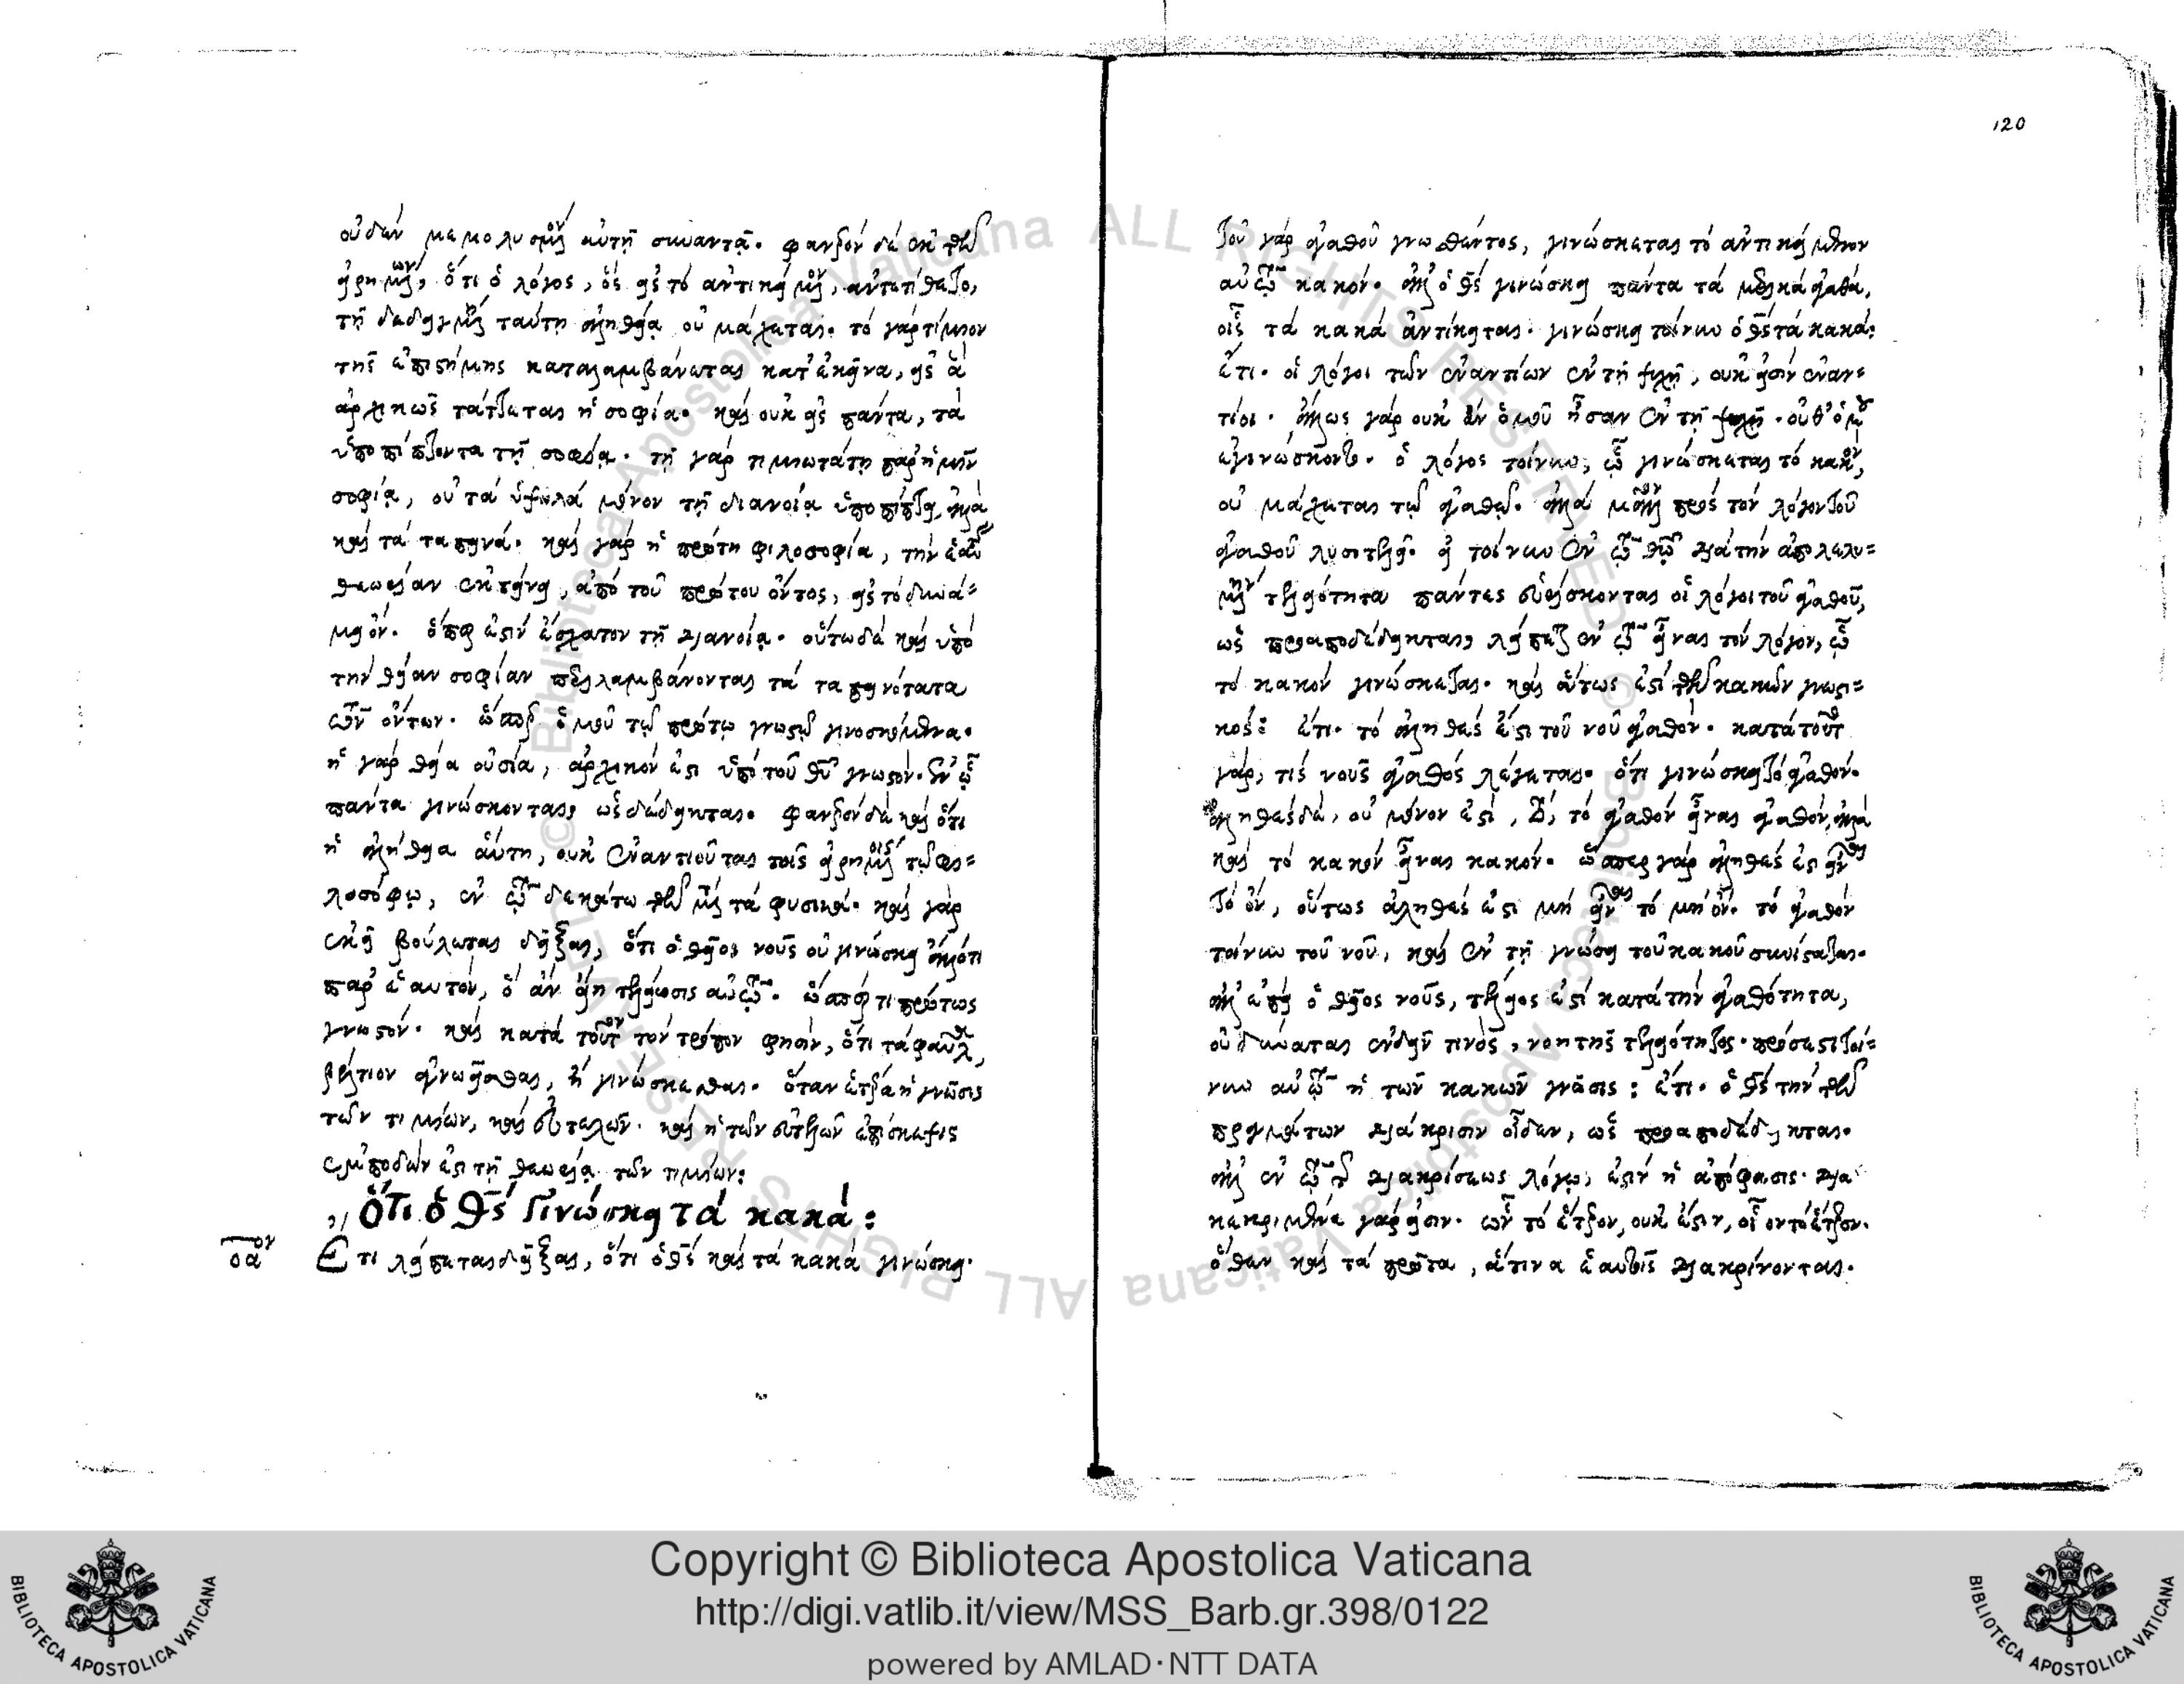 οὐδὲν μεμολυσμένον αὐτῇ συναντᾷ. φανερὸν δὲ ἐκ τῶν
εἰρημένων, ὅτι ὁ λόγος, ὃς εἰς τὸ ἀντικείμενον, ἀντετίθετο,
τῇ δεδειγμένῃ ταύτῃ ἀληθείᾳ οὐ μάχεται. τὸ γὰρ τίμιον
τῆς ἐπιστήμης καταλαμβάνεται κατ' ἐκεῖνα, εἰς ἃ
ἀρχικῶς τάττεται ἡ σοφία. καὶ οὐκ εἰς πάντα, τὰ
ὑποπίπτοντα τῇ σοφίᾳ. τῇ γὰρ τιμιωτάτῃ παρ' ἡμῖν
σοφίᾳ, οὐ τὰ ὑψηλὰ μόνον τῇ διανοίᾳ ὑποπίπτει, ἀλλὰ
καὶ τὰ ταπεινά. καὶ γὰρ ἡ πρώτη φιλοσοφία, τὴν ἑαυτῆς
θεωρίαν ἐκτείνει, ἀπὸ τοῦ πρώτου ὄντος, εἰς τὸ δυνά=
μει ὄν. ὅπερ ἐστὶν ἔσχατον τῇ διανοίᾳ. οὕτω δὲ καὶ ὑπὸ
τὴν θείαν σοφίαν περιλαμβάνονται τὰ ταπεινότατα
τῶν ὄντων. ὥσπερ ὁμοῦ τῷ πρώτῳ γνωστῷ γινοσκόμενα.
ἡ γὰρ θεία οὐσία, ἀρχικόν ἐστι ὑπὸ τοῦ θεοῦ γνωστόν. ἐν ᾧ
πάντα γινώσκονται, ὡς δέδεικται. φανερὸν δὲ καὶ ὅτι
ἡ ἀλήθεια αὕτη, οὐκ ἐναντιοῦται τοῖς εἰρημένοις τῷ φι=
λοσόφῳ, ἐν τῷ δεκάτῳ τῶν μετὰ τὰ φυσικά. καὶ γὰρ
ἐκεῖ βούλεται δεῖξαι, ὅτι ὁ θεῖος νοῦς οὐ γινώσκει ἄλλό τι
παρ' ἑαυτόν, ὃ ἂν εἴη τελείωσις αὐτοῦ. ὥσπερ τι πρώτως
γνωστόν. καὶ κατὰ τοῦτον τὸν τρόπον φησίν, ὅτι τὰ φαῦλα,
βέλτιον ἀγνοεῖσθαι, ἢ γινώσκεσθαι. ὅταν ἑτέρα ἡ γνῶσις
τῶν τιμίων, καὶ εὐτελῶν. καὶ ἡ τῶν εὐτελῶν ἐπίσκεψις
ἐμποδών ἐστι τῇ θεωρίᾳ τῶν τιμίων:
Ὅτι ὁ θεὸς Γινώσκει τὰ κακά:
οαον Ἔτι λείπεται δεῖξαι, ὅτι ὁ θεὸς καὶ τὰ κακὰ γινώσκει.
120
Τοῦ γὰρ ἀγαθοῦ γνωσθέντος, γινώσκεται τὸ ἀντικείμενον
αὐτῷ κακόν. ἀλλ' ὁ θεὸς γινώσκει πάντα τὰ μερικὰ ἀγαθά,
οἷς τὰ κακὰ ἀντίκειται. γινώσκει τοίνυν ὁ θεὸς τὰ κακά:
ἔτι. οἱ λόγοι τῶν ἐναντίων ἐν τῇ ψυχῇ, οὐκ εἰσὶν ἐναν=
τίοι. ἄλλως γὰρ οὐκ ἂν ὁμοῦ ἦσαν ἐν τῇ ψυχῇ. οὐθ' ὁμοῦ
ἐγινώσκοντο. ὁ λόγος τοίνυν, ᾧ γινώσκεται τὸ κακόν,
οὐ μάχεται τῷ ἀγαθῷ. ἀλλὰ μᾶλλον πρὸς τὸν λόγον τοῦ
ἀγαθοῦ λυσιτελεῖ. εἰ τοίνυν ἐν τῷ θεῷ διὰ τὴν ἀπολελυ=
μένην τελειότητα πάντες εὑρίσκονται οἱ λόγοι τοῦ ἀγαθοῦ,
ὡς προαποδέδεικται, λείπεται ἐν αὐτῷ εἶναι τὸν λόγον, ᾧ
τὸ κακὸν γινώσκεται. καὶ οὕτως ἐστὶ τῶν κακῶν γνωστι=
κός: ἔτι. τὸ ἀληθές ἐστι τοῦ νοῦ ἀγαθόν. κατὰ τοῦτο
γάρ, τὶς νοῦς ἀγαθὸς λέγεται. ὅτι γινώσκει τὸ ἀγαθόν.
ἀληθὲς δέ, οὐ μόνον ἐστί, τὸ ἀγαθὸν εἶναι ἀγαθόν, ἀλλὰ
καὶ τὸ κακὸν εἶναι κακόν. ὥσπερ γὰρ ἀληθές ἐστι εἶναι
τὸ ὄν, οὕτως ἀληθές ἐστι μὴ εἶναι τὸ μὴ ὄν. τὸ ἀγαθὸν
τοίνυν τοῦ νοῦ, καὶ ἐν τῇ γνώσει τοῦ κακοῦ συνίσταται.
ἀλλ' ἐπεὶ ὁ θεῖος νοῦς, τέλειός ἐστι κατὰ τὴν ἀγαθότητα,
οὐ δύναται ἐνδεῖν τινός, νοητῆς τελειότητος. πρόσεστι τοί=
νυν αὐτῷ ἡ τῶν κακῶν γνῶσις: ἔτι. ὁ θεὸς τὴν τῶν
πραγμάτων διάκρισιν οἶδεν, ὡς προαποδέδεικται.
ἀλλ' ἐν τῷ τῆς διακρίσεως λόγῳ, ἐστὶν ἡ ἀπόφασις. δια
κεκριμένα γάρ εἰσιν. ὧν τὸ ἕτερον, οὐκ ἔστιν, οἷον τὸ ἕτερον.
ὅθεν καὶ τὰ πρῶτα, ἅτινα ἑαυτοῖς διακρίνονται.
Copyright © Biblioteca Apostolica Vaticana
http://digi.vatlib.it/view/MSS_Barb.gr.398/0122
powered by AMLAD·NTT DATA